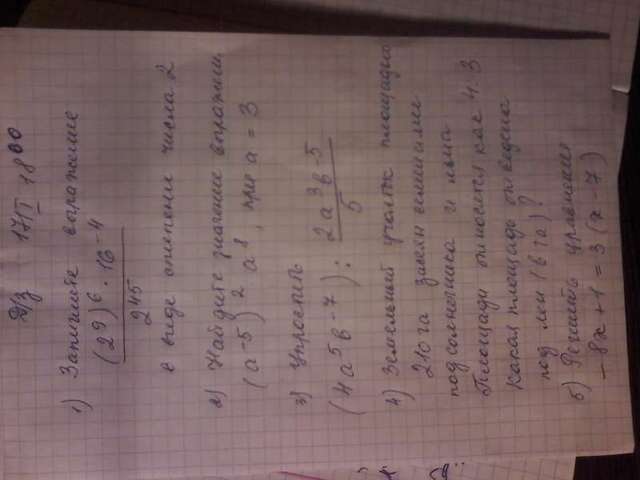 Д/з 17/I 18 00
1) Запишите выражение
(2 9) 6 · 16 -4
2 45
в виде степени числа 2
2) Найдите значение выражен.
(a -5) 2 a 8, при a = 3
3) Упростить
(4a 5 b -7) : 2a 3 b -5
5
4) Земельный участок площадью
210 га засеян семенами
подсолнечника и льна
Площади относятся как 4:3
Какая площадь отведена
под лен (в га)?
5) Решить уравнения
-8x + 1 = 3 (x - 7)